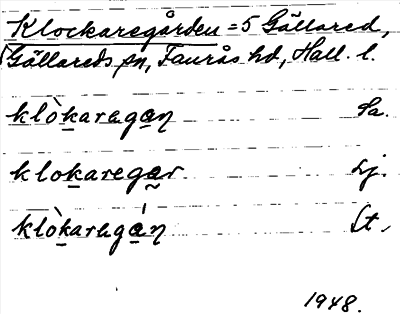 Klockaregården = 5 Gällared,
Gällareds sn, Faurås hd, Hall. l.
klòkaragan Sa.
klokaregar Lj.
klòkaragán St.
1948.